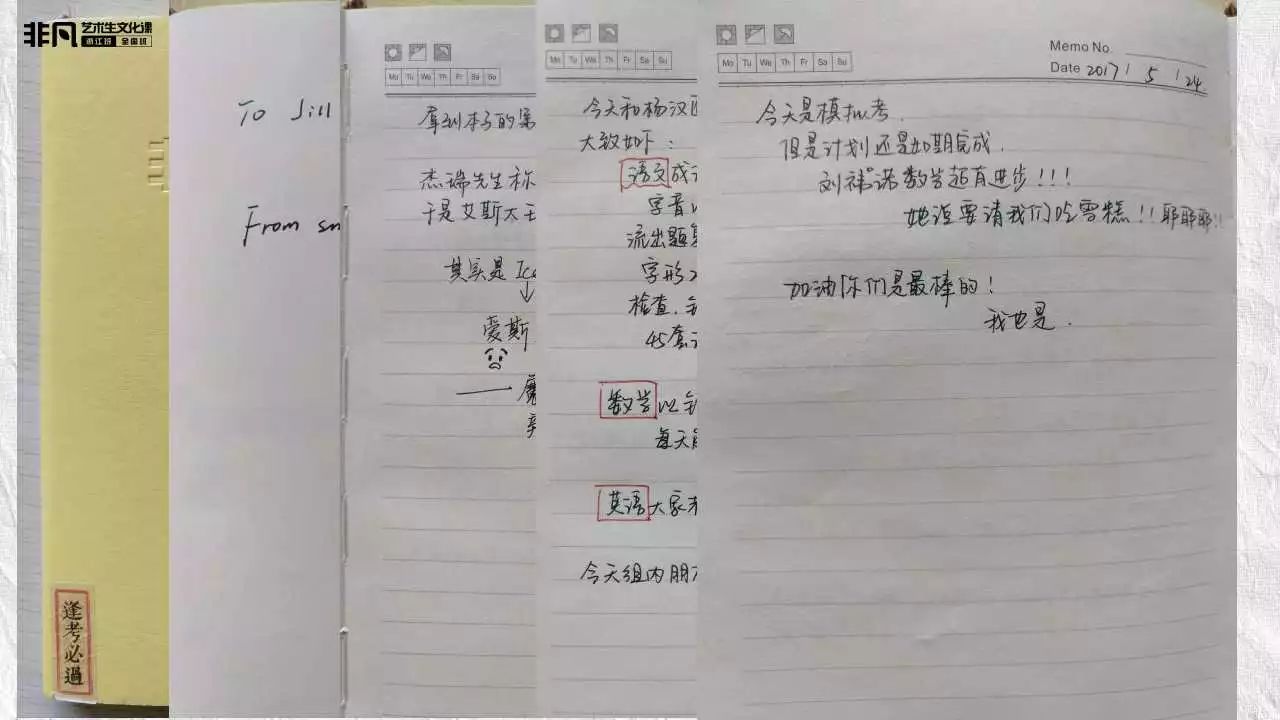 非凡 艺术生文化课
浙江班 全国班
逢考必過
To Jill
From sn
Mo Tu We Th Fr Sa Su
拿到本子的第
杰瑞先生称
于是艾斯大王
其实是 Ice
↓
爱斯
——魔
Mo Tu We Th Fr Sa Su
今天和杨汉
大致如下：
语文成
字音
流出题
字形
检查.
45套
数学以
每天
英语大家
今天组内朋
Mo Tu We Th Fr Sa Su
Memo No.
Date 2017 / 5 / 24.
今天是模拟考.
但是计划还是如期完成.
刘祎诺数学超有进步!!!
她说要请我们吃雪糕!! 耶耶耶!!
加油你们是最棒的!
我也是.